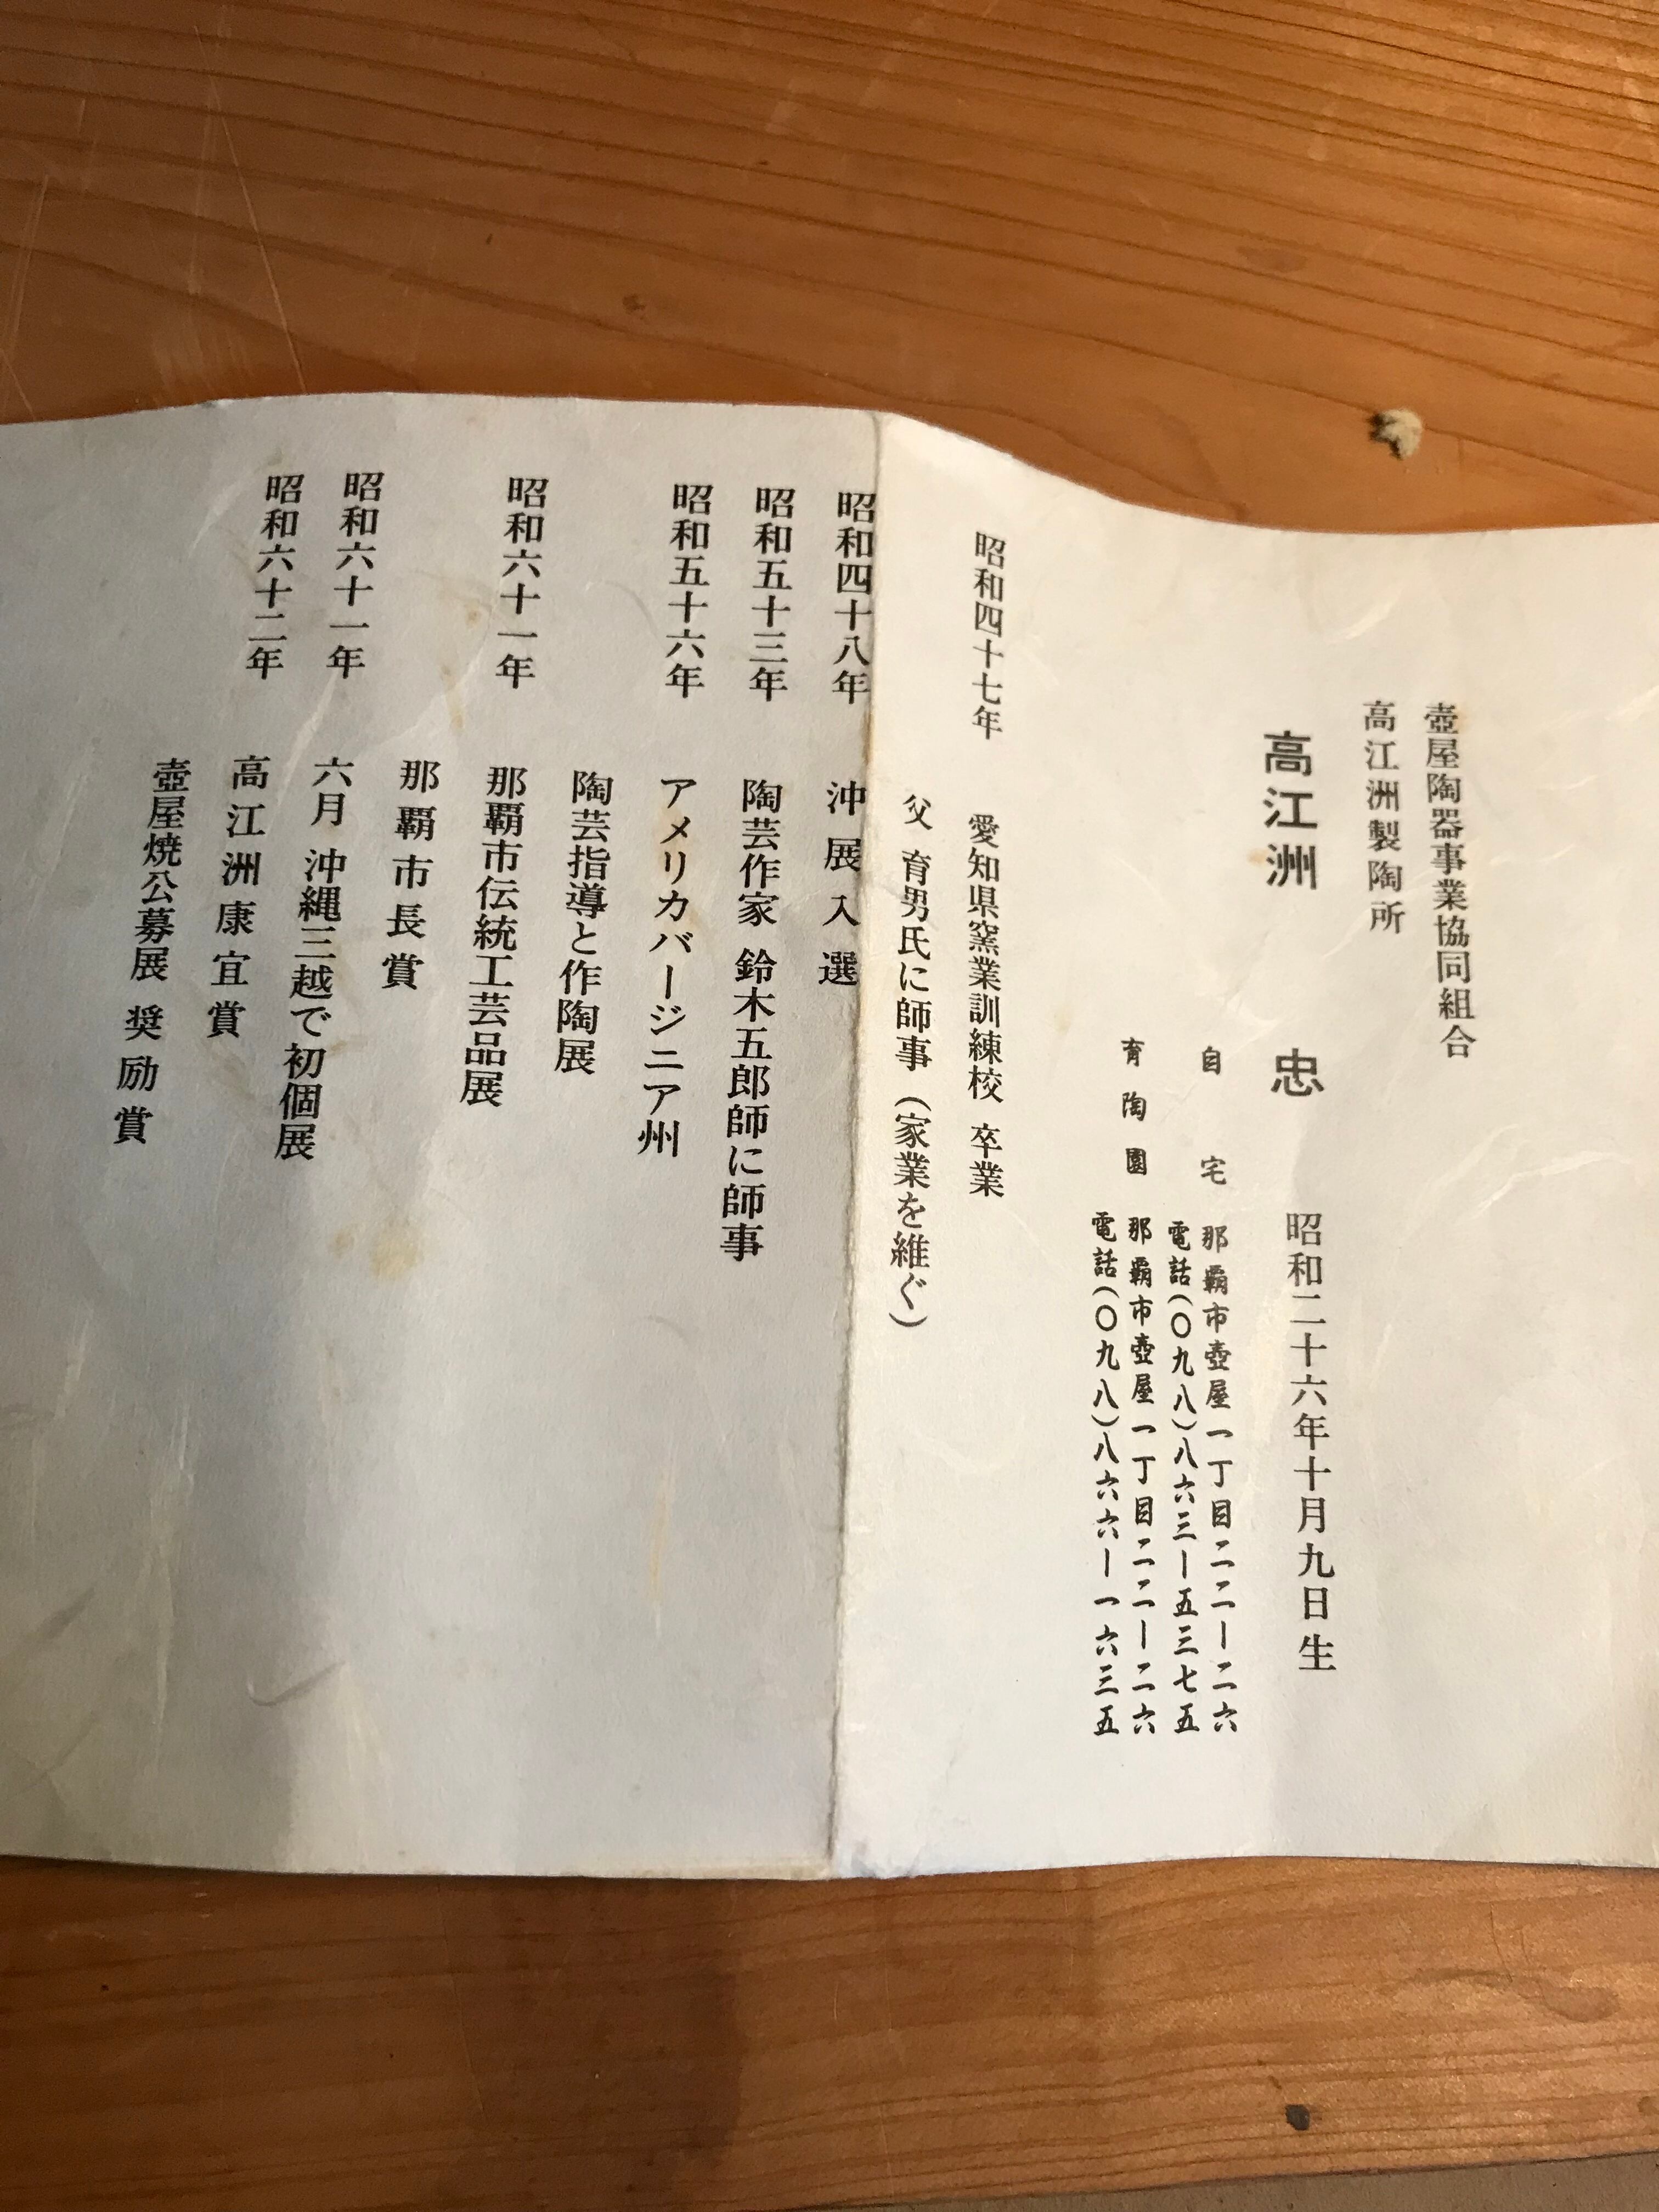 壺屋陶器事業協同組合
高江洲製陶所
高江洲 忠 昭和二十六年十月九日生
自宅 那覇市壺屋一丁目二二ー二六
電話(〇九八)八六三ー五三七五
育陶園 那覇市壺屋一丁目二二ー二六
電話(〇九八)八六六ー一六三五
昭和四十七年 愛知県窯業訓練校 卒業
父 育男氏に師事(家業を維ぐ)
昭和四十八年 沖展入選
昭和五十三年 陶芸作家 鈴木五郎師に師事
昭和五十六年 アメリカバージニア州
陶芸指導と作陶展
昭和六十一年 那覇市伝統工芸品展
那覇市長賞
昭和六十一年 六月 沖縄三越で初個展
昭和六十二年 高江洲康宜賞
壺屋焼公募展 奨励賞